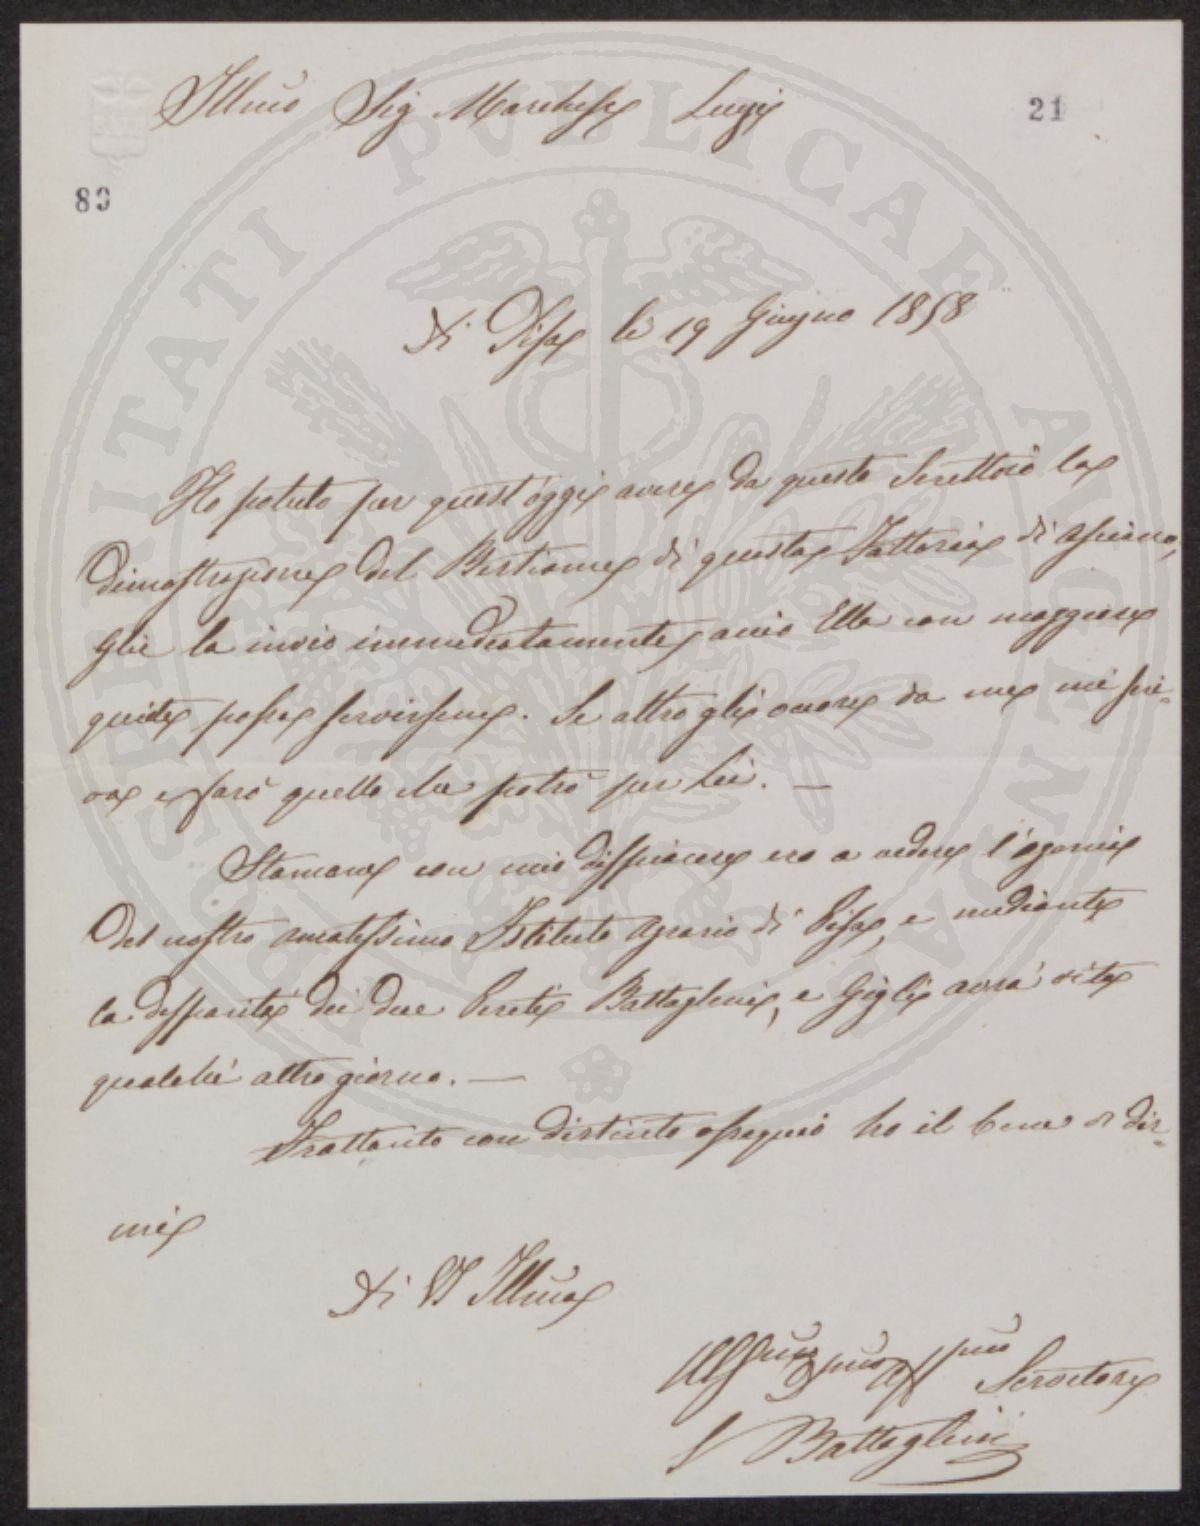 Illmo Sig Marchese Luigi
21
80
Di Pisa li 19 Giugno 1858
Ho potuto per quest'oggi avere da questo Scrittoio la
dimostrazione del Bestiame di questa Fattoria di Asciano,
glie la invio immediatamente, acciò Ella con maggiore
guide possa servirsene. Se altro gli occore da me mi scri-
va e farò quello che potrò per Lei. —
Stamane con mio dispiacere ero a vedere l'agonia
del nostro amatissimo Istituto Agrario di Pisa, e mediante
la disparità dei due Periti Battaglini, e Gigli avrà vita
qualche altro giorno. —
Frattanto con distinto ossequio ho il bene di dir-
mi
Di VS Illma
Servitore
Battaglini
HOSPITATI PVBLICAE AVGENDAE